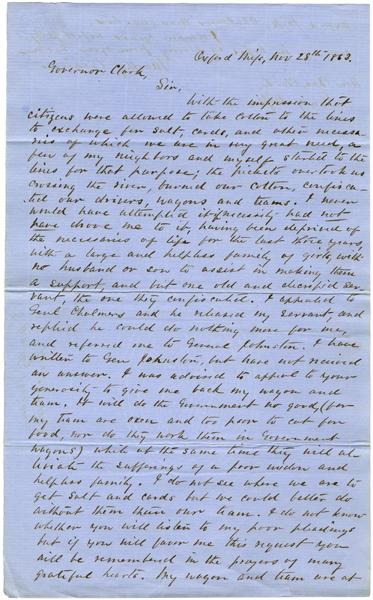 Oxford Miss, Nov 28th 1863.
Governor Clark,
Sir,
With the impression that
citizens were allowed to take cotton to the lines
to exchange for salt, cards, and other necessa-
ries of which we are in very great need, a
few of my neighbors and myself started to the
lines for that purpose; the pickets overtook us
crossing the river, burned our cotton, confisca-
ted our drivers, wagons and teams. I never
would have attempted it if necessity had not
have drove me to it, having been deprived of
the necessaries of life for the last three years,
with a large and helpless family of girls, with
no husband or son to assist in making them
a support, and but one old and decrepid ser-
vant, the one they confiscated. I appealed to
Genl Chalmers and he released my servant, and
replied he could do nothing more for me,
and referred me to General Johnston. I have
written to Gen Johnston, but have not recieved
an answer. I was advised to appeal to your
generosity to give me back my wagon and
team. It will do the Government no good (for
my team are oxen and too poor to eat for
food, nor do they work them in Government
wagons) while at the same time they will al-
leviate the sufferings of a poor widow and
helpless family. I do not see where we are to
get salt and cards but we could better do
without them than our team. I do not know
whether you will listen to my poor pleadings
but if you will favor me this request you
will be remembered in the prayers of many
grateful hearts. My wagon and team are at